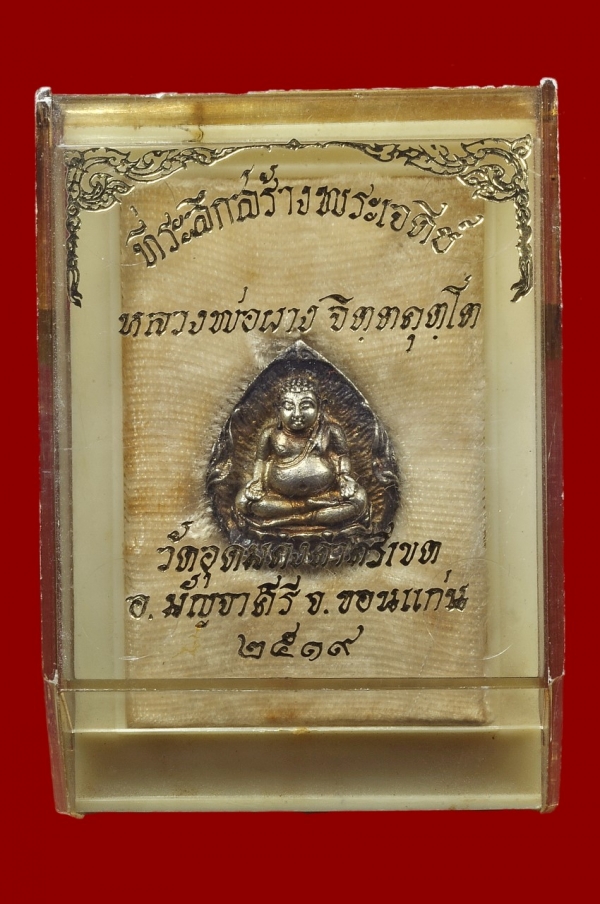 ที่ระลึกสร้างพระเจดีย์
หลวงพ่อผาง จิตฺตคุตฺโต
วัดอุดมคงคาคีรีเขต
อ. มัญจาคีรี จ. ขอนแก่น
๒๕๑๙